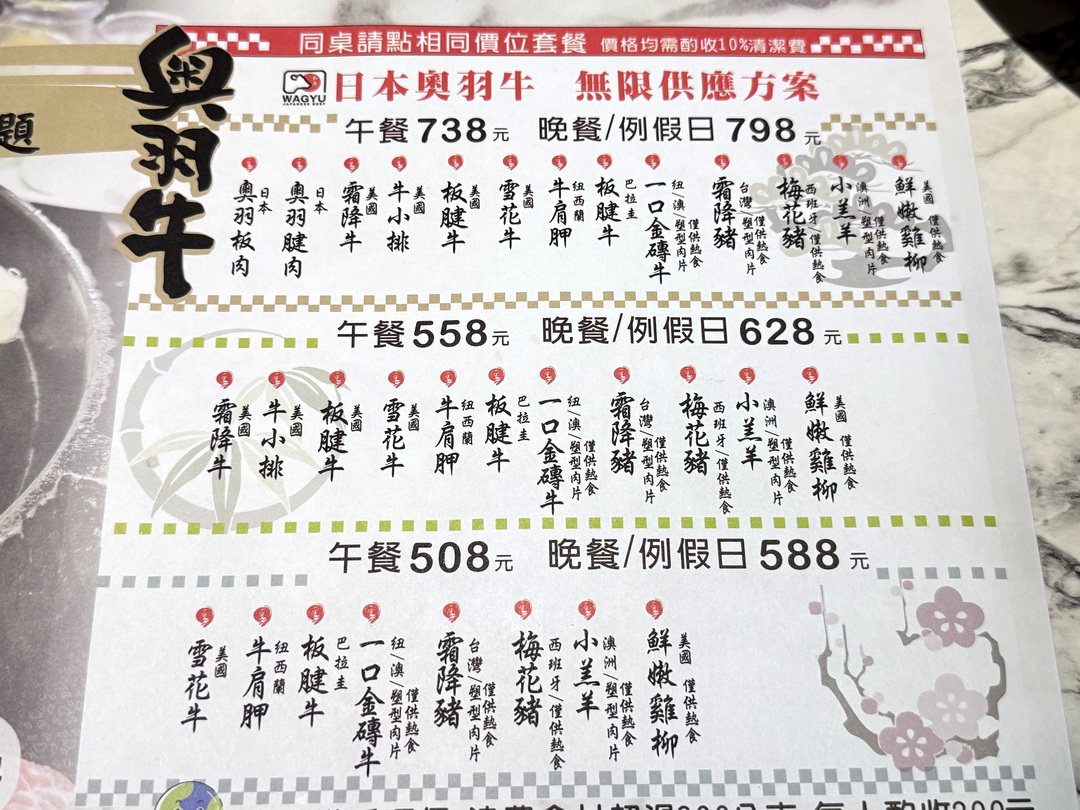 同桌請點相同價位套餐 價格均需酌收10%清潔費
奧羽牛
題
WAGYU
JAPANESE BEEF
日本奧羽牛 無限供應方案
午餐738元 晚餐/例假日798元
日本 奧羽板肉
日本 奧羽腱肉
美國 霜降牛
美國 牛小排
美國 板腱牛
美國 雪花牛
紐西蘭 牛肩胛
巴拉圭 板腱牛
紐/澳/塑型肉片 僅供熱食 一口金磚牛
台灣/塑型肉片 僅供熱食 霜降豬
西班牙/僅供熱食 梅花豬
澳洲/塑型肉片 僅供熱食 小羔羊
美國 僅供熱食 鮮嫩雞柳
午餐558元 晚餐/例假日628元
美國 霜降牛
美國 牛小排
美國 板腱牛
美國 雪花牛
紐西蘭 牛肩胛
巴拉圭 板腱牛
紐/澳/塑型肉片 僅供熱食 一口金磚牛
台灣/塑型肉片 僅供熱食 霜降豬
西班牙/僅供熱食 梅花豬
澳洲/塑型肉片 僅供熱食 小羔羊
美國 僅供熱食 鮮嫩雞柳
午餐508元 晚餐/例假日588元
美國 雪花牛
紐西蘭 牛肩胛
巴拉圭 板腱牛
紐/澳/塑型肉片 僅供熱食 一口金磚牛
台灣/塑型肉片 僅供熱食 霜降豬
西班牙/僅供熱食 梅花豬
澳洲/塑型肉片 僅供熱食 小羔羊
美國 僅供熱食 鮮嫩雞柳